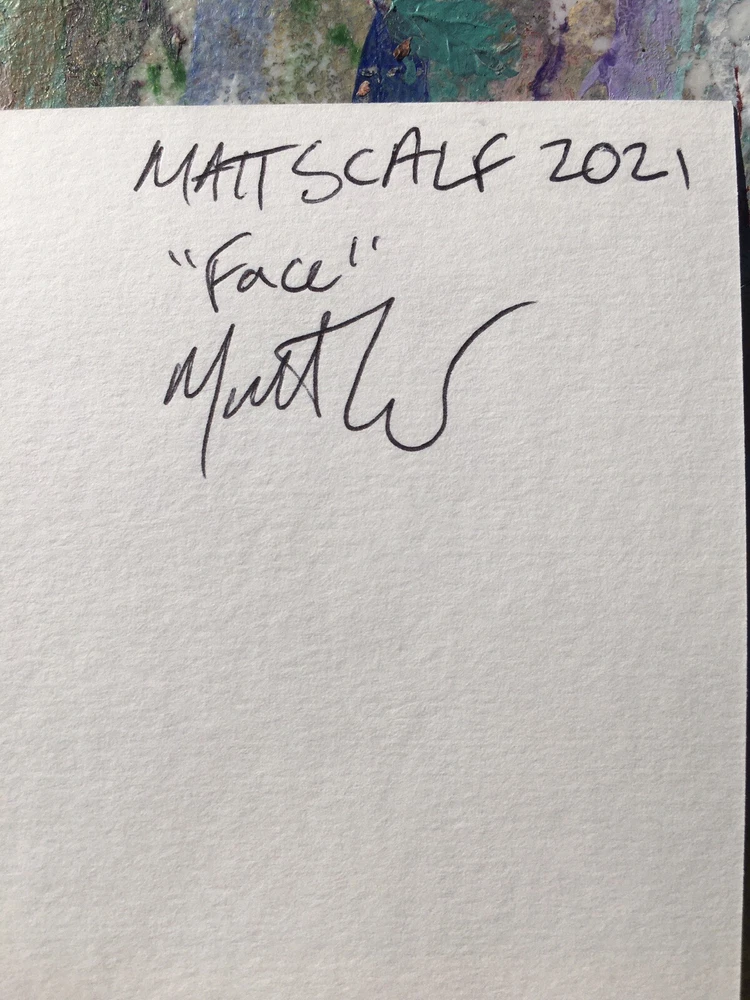 MATT SCALF 2021
"Face"
Matt